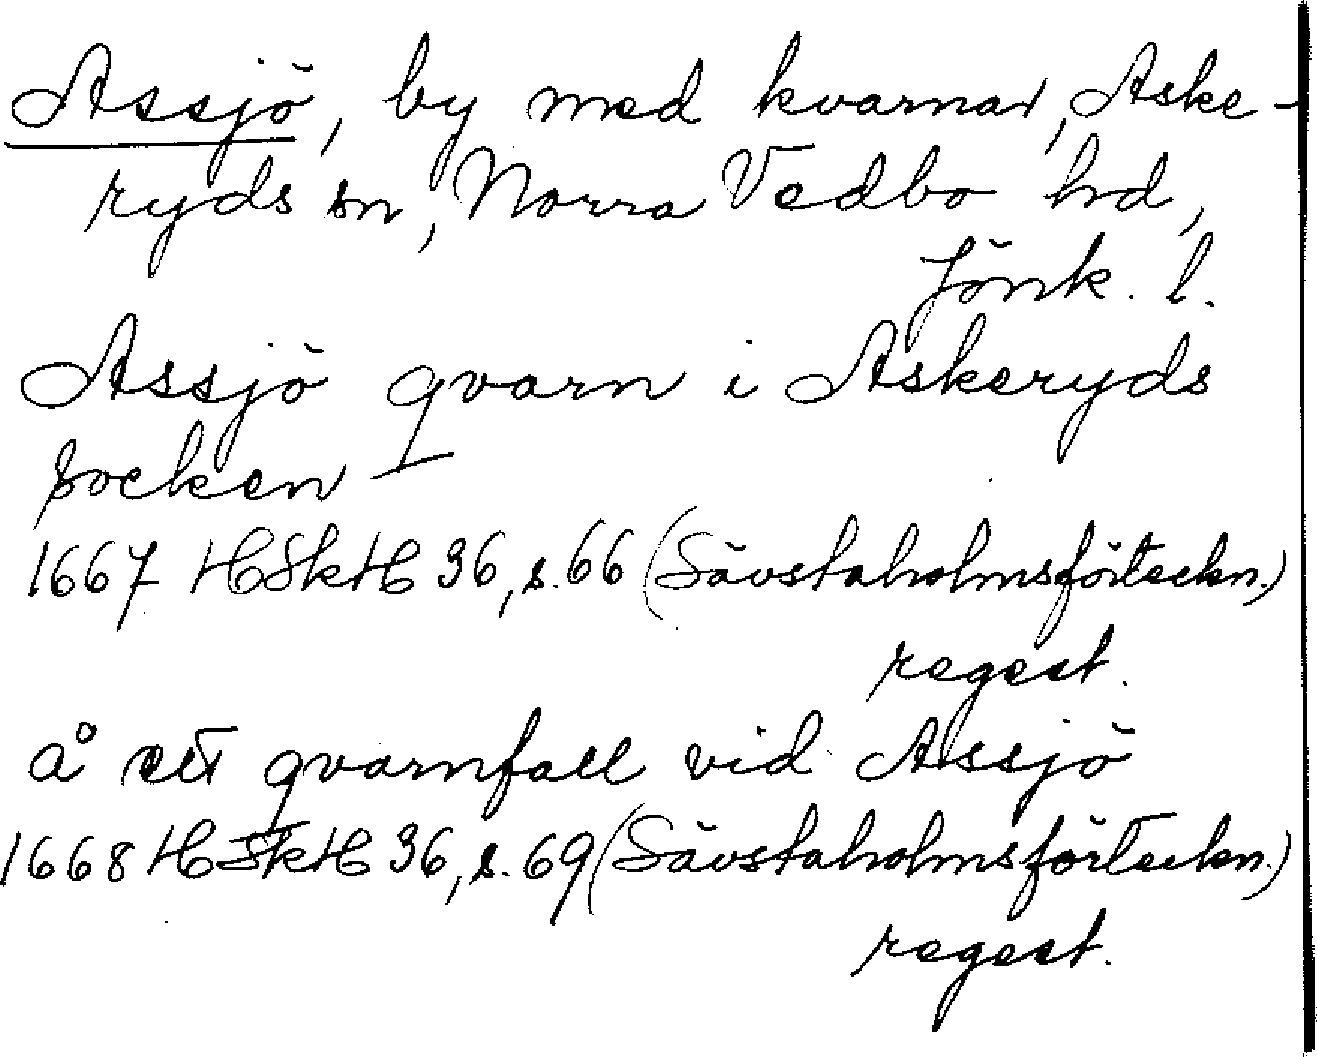 Assjö, by med kvarnar, Aske-
ryds sn, Norra Vedbo hd,
Jönk. l.
Assjö qvarn i Askeryds
socken
1667 HSkH 36, s. 66 (Sävstaholmsförteckn.)
regest.
å ett qvarnfall vid Assjö
1668 HSkH 36, s. 69 (Sävstaholmsförteckn.)
regest.